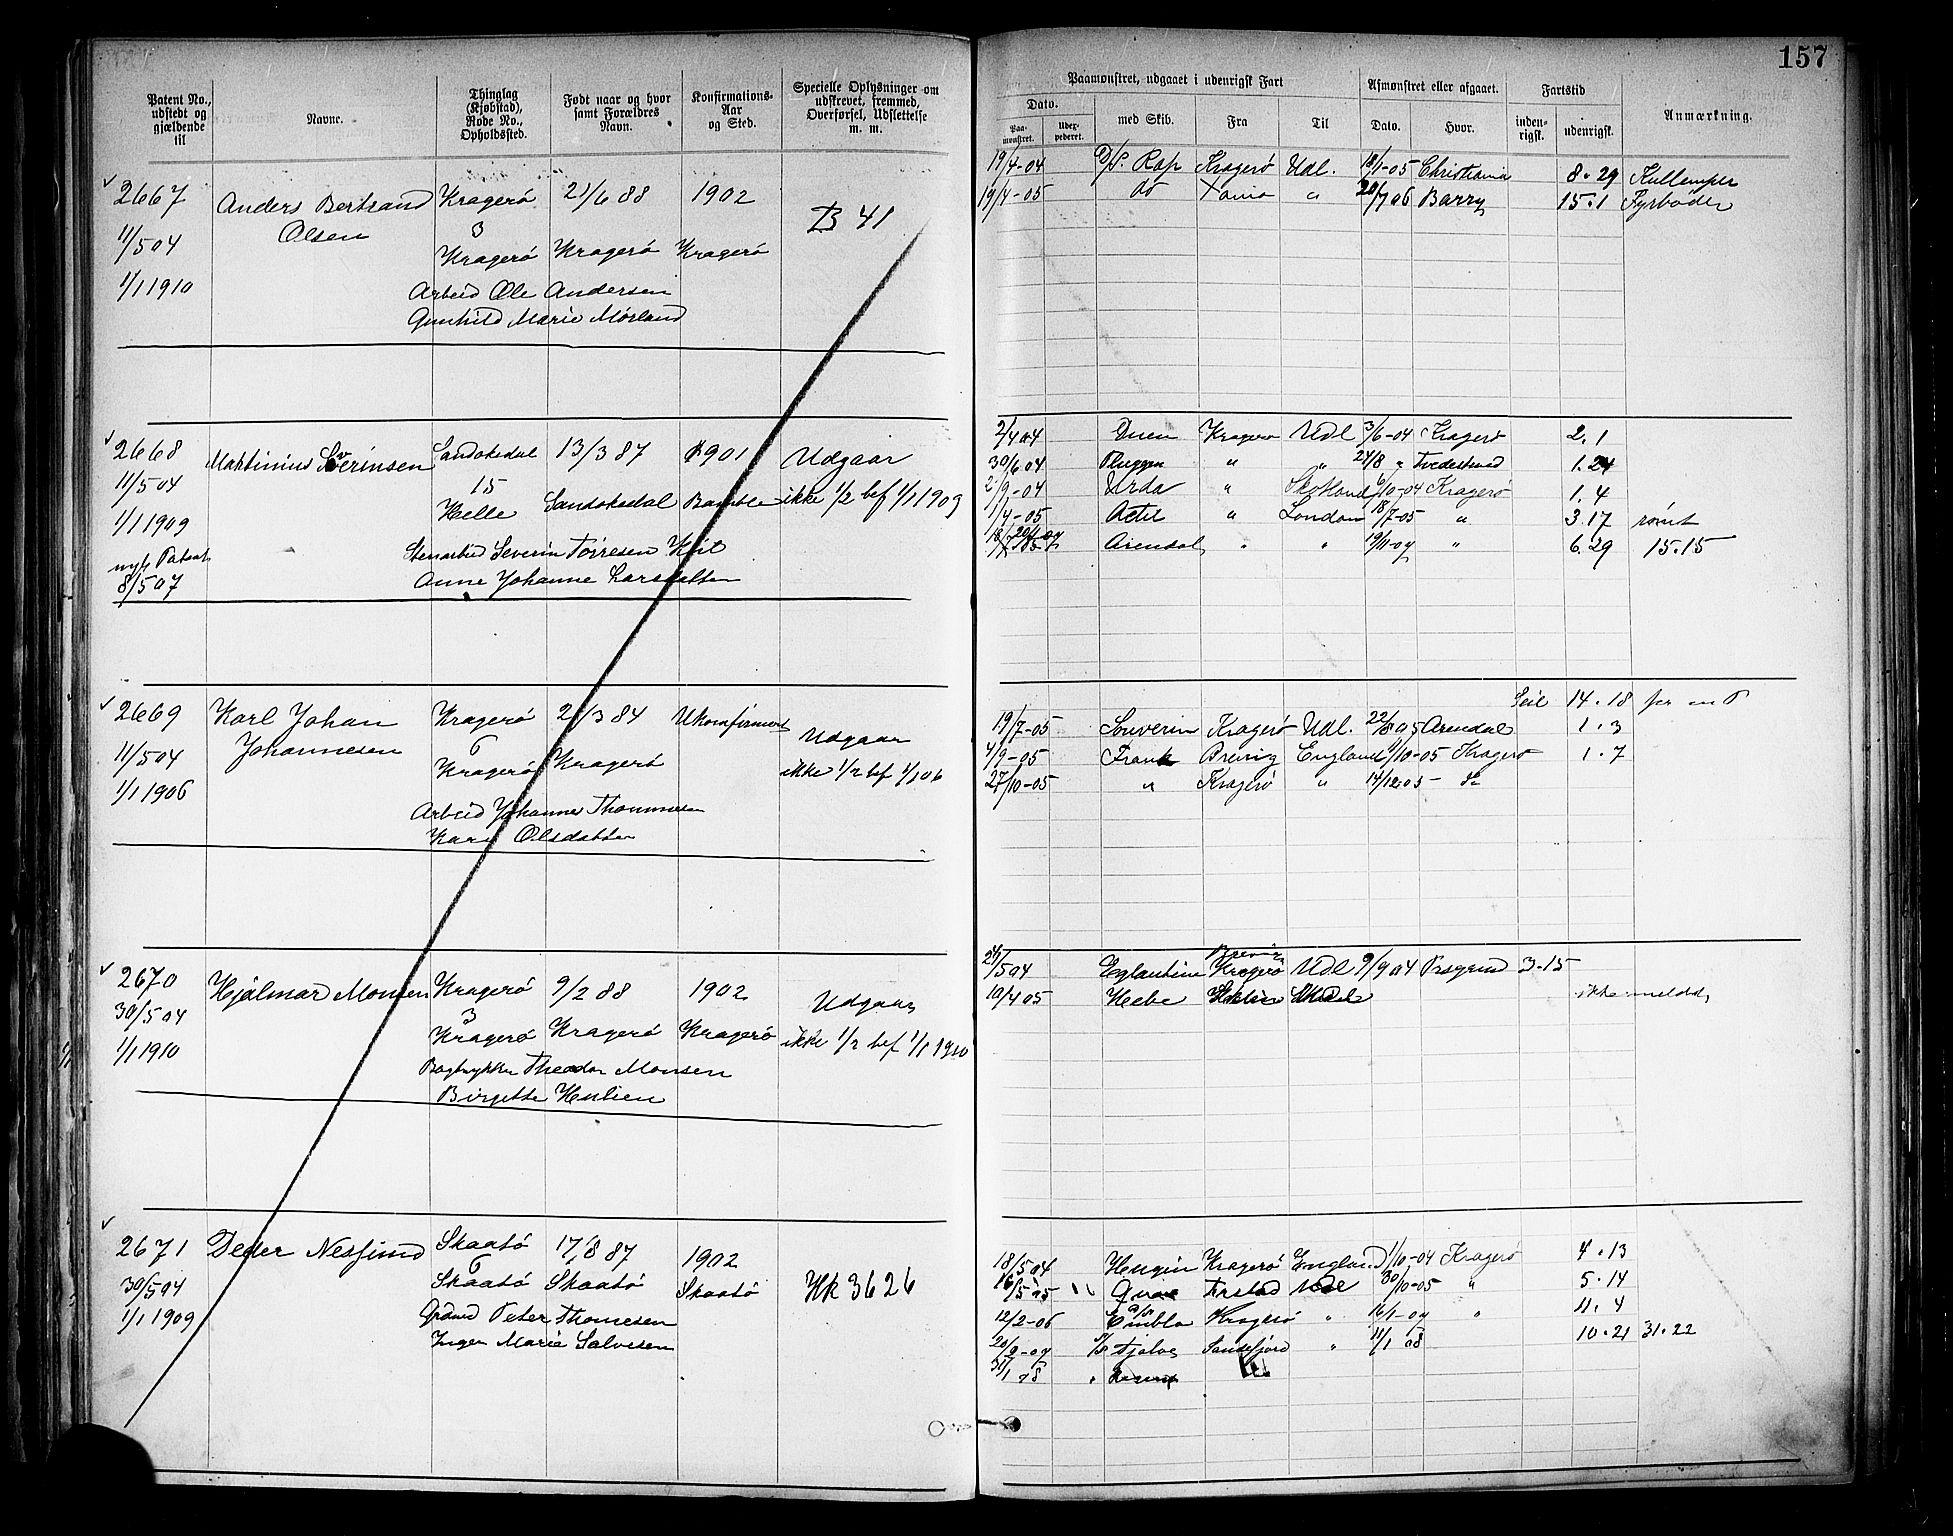 157
Patent No., udstedt og gjældende til
Navne.
Thinglag (Kjøbstad), Rode No., Opholdssted.
Født naar og hvor samt Forældres Navn.
Konfirmations-Aar og Sted.
Specielle Oplysninger om udskrevet, fremmed, Overførsel, Udslettelse m. m.
Paamønstret, udgaaet i udenrigsk Fart
Afmønstret eller afgaaet.
Fartstid
Anmærkning.
Dato.
Paa-mønstret.
Udex-pederet.
med Skib.
Fra
Til
Dato.
Hvor.
inden-rigsk.
udenrigsk.
2667 Anders Bertrand Kragerø 21/6 88 1902 B 41
11/5 04 Olsen 3
Kragerø Kragerø Kragerø
1/1 1910 Arbeid Ole Andersen
Gunhild Marie Mørland
19/4-04 D/S. Rap Kragerø Udl. 18/1-05 Christiania 8.29 Kullemper
19/4-05 do " 20/7 06 Barry 15.1 Fyrbøder
2668 Martinius Sverinsen Sandøkedal 13/3 87 1901 Udgaar
11/5 04 15
Helle Sandøkedal Bamble ikke 1/2 bef 1/1 1909
1/1 1909
nyt Patent Stenarbeid Severin Toresen
8/5 07 Anne Johanne Larsdatter
2/4 04 Duen Kragerø Udl 3/6-04 Kragerø 2.1
30/6 04 " " 24/8 " Tvedestrand 1.24
2/9-04 Urda " Skotland 6/10-04 Kragerø 1.4
1/4-05 " London 18/7-05 " 3.17 rømt
Arendal " " 19/11-07 " 6.29 15.15
2669 Karl Johan Kragerø 2/3 84 Ukonfirmert
Udgaar
11/5 04 Johannesen 6
Kragerø Kragerø ikke 1/2 bef 1/1 06
1/1 1906
Arbeid Johannes Thommesen
Kari Olsdatter
Seil 14.18
19/7-05 Souverin Kragerø Udl. 22/8 05 Arendal 1.3
4/9-05 Frank Brevig England 1/10-05 Kragerø 1.7
27/10-05 " Kragerø " 14/12 05 - do
2670 Hjalmar Monsen Kragerø 9/2 88 1902 Udgaar
30/5 04 3
Kragerø Kragerø Kragerø ikke 1/2 bef 1/1 1910
1/1 1910
Bogtrykker Theodor Monsen
Birgitte Heulien
Brevig
24/5 04 Eglantine Kragerø Udl 9/9 04 Porsgrund 3.15
10/4 05 Hebe ikke meldt,
2671 Peder Nesfjund Skaatø 17/8 87 1902
6
30/5 04 Skaatø Skaatø Skaatø Hk 3626
1/1 1909 Peter Thomesen
Inger Marie Salvesen
18/5 04 Hugin Kragerø England 1/10-04 Kragerø 4.13
16/5 05 " Udl 30/10-05 " 5.14
12/2-06 Embla Kragerø " 16/1-07 " 11.4
20/2-07 Fjalve Sandefjord " 11/1 08 10.21 31.22
31/1 08 "